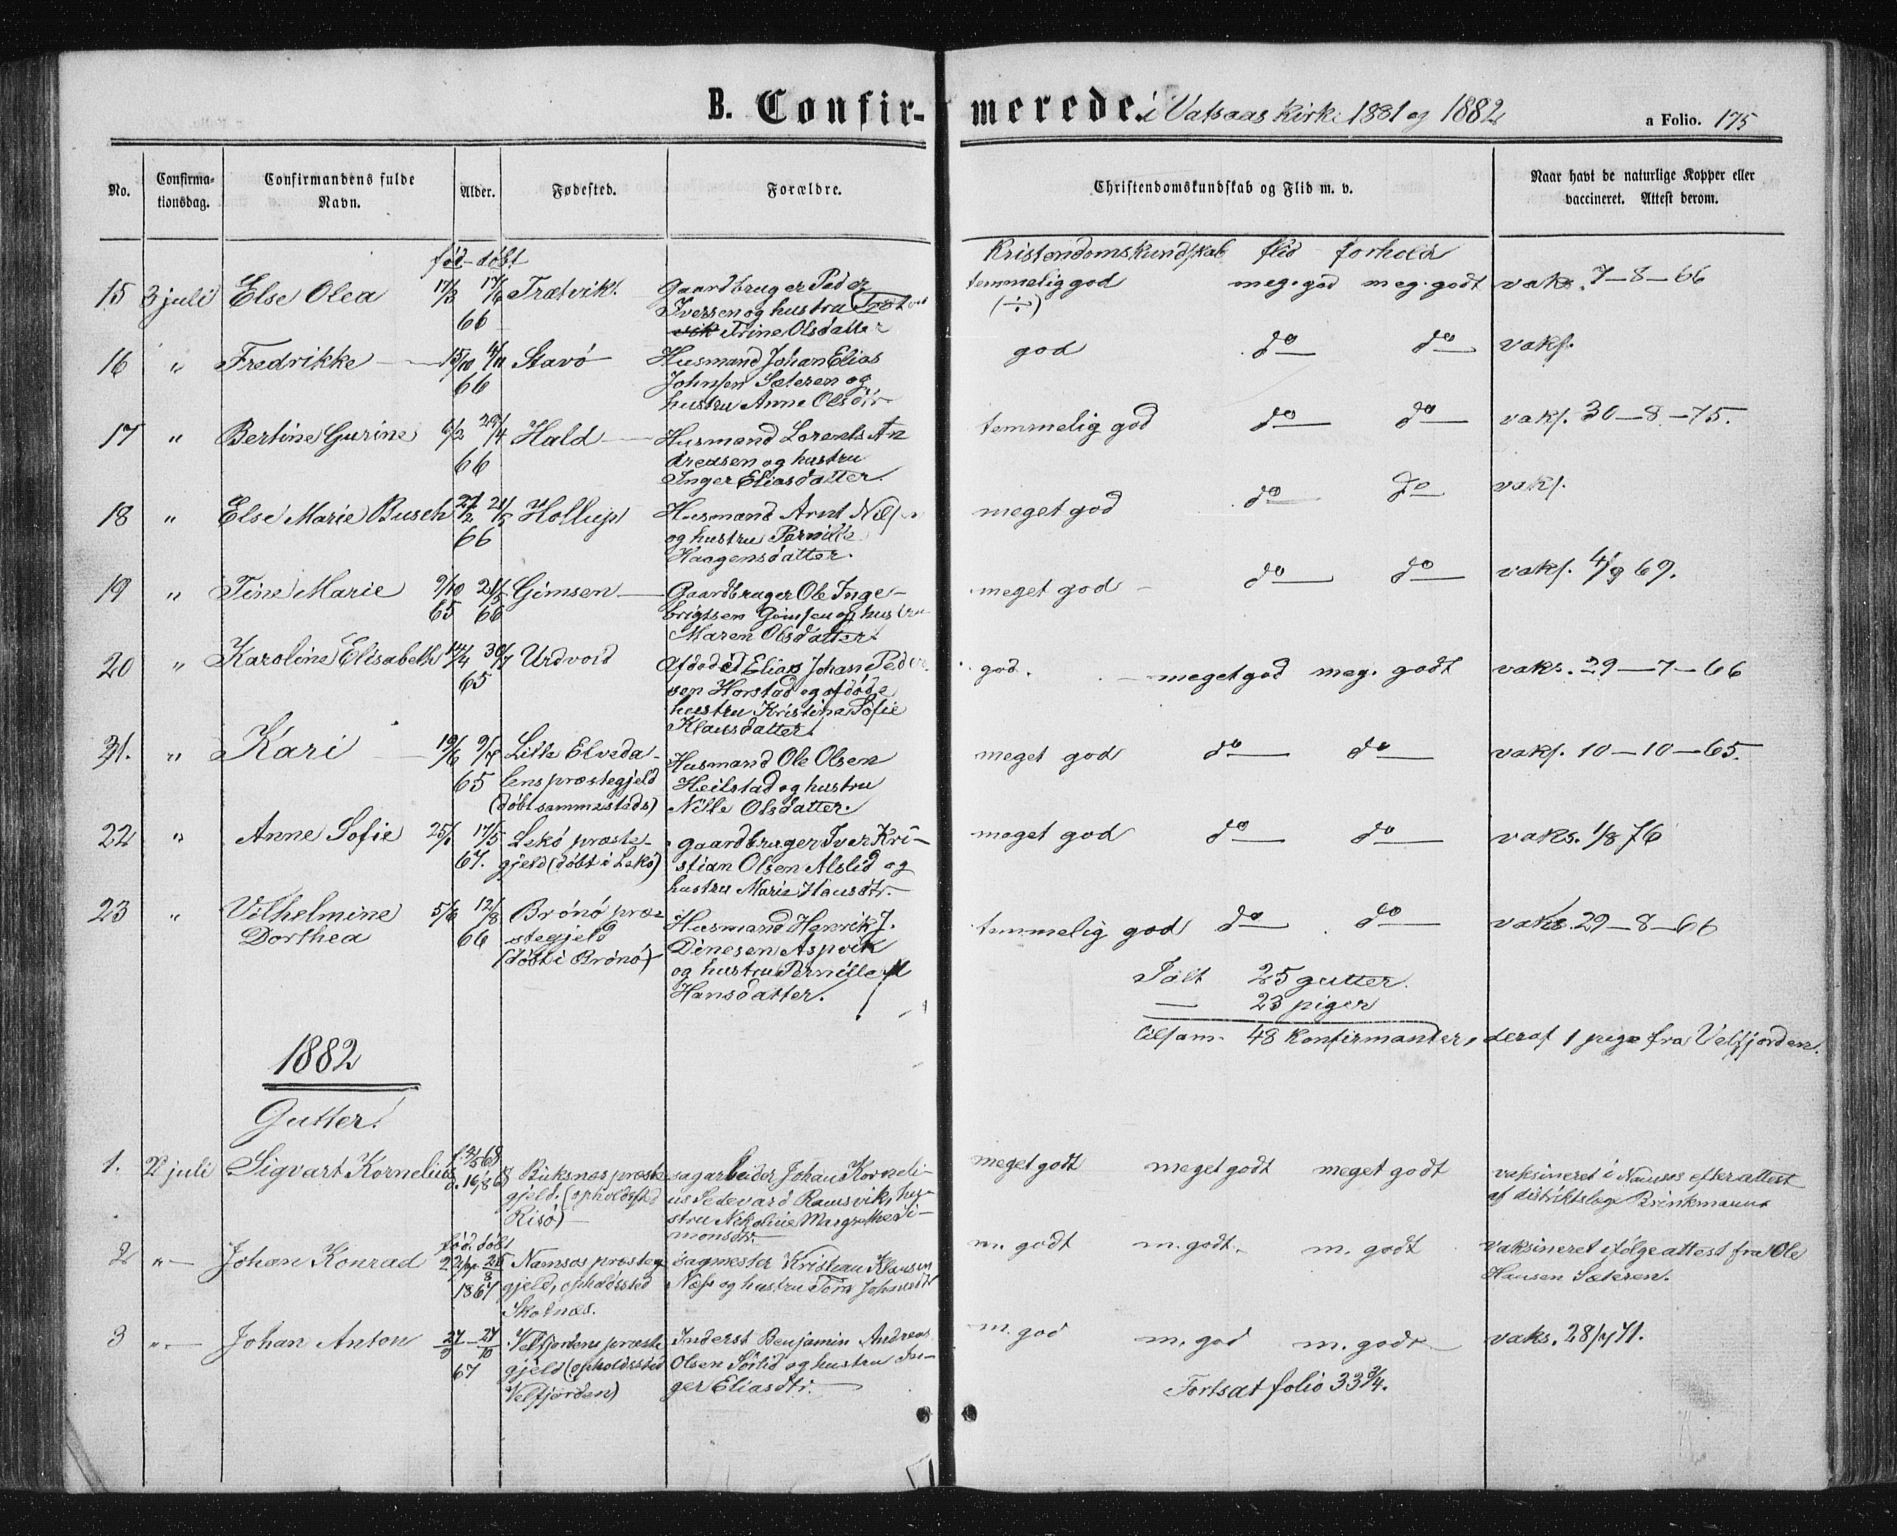 B. Confirmerede. i Vatsaas kirke 1881 og 1882
a Folio. 175
No.
Confirma-
tionsdag.
Confirmandens fulde
Navn.
Alder.
Fødested.
Forældre.
Christendomskundskab og Flid m. v.
Naar havt de naturlige Kopper eller
vaccineret. Attest derom.
fød – døbt
Kristendomskundskab flid forhold
15 3 juli Else Olea 17/3 17/6 66 Trælvik.
Gaardbruger Peder
Iversen og hustru
Trine Olsdatter
temmelig god (÷) meg. god meg. godt vaks. 7–8–66
16 " Fredrikke 15/10 4/11 66 Stavø
Husmand Johan Elias
Johnsen Sæteren og
hustru Anne Olsdtr
god do do vaks.
17 " Bertine Gurine 6/2 29/4 66 Hald
Husmand Lorents An
dreasen og hustru
Inger Eliasdatter.
temmelig god do do vaks. 30–8–75.
18 " Else Marie Busch 27/2 21/5 66 Hollup
Husmand Arnt Nils
og hustru Pernille
Haagensdatter.
meget god do do vaks.
19 " Tine Marie 9/10 65 21/5 66 Gimsen
Gaardbruger Ole Inge-
brigtsen Gimsen og hustru
Maren Olsdatter
meget god do do vaks. 4/9 69.
20 " Karoline Elisabeth 14/4 30/7 65 Urdvold
Afdød Elias Johan Peder
sen Horstad og afdøde
hustru Kristina Sofie
Klausdatter
god. meget god meg. godt vaks. 29–7–66
21. " Kari 19/6 9/7 65
Lille Elveda-
lens præstegjeld
(døbt sammesteds)
Husmand Ole Olsen
Heilstad og hustru
Nille Olsdatter.
meget god do do vaks. 10–10–65.
22 " Anne Sofie 25/1 17/5 67.
Lekø præste-
gjeld (døbt i Lekø)
gaardbruger Iver Kri-
stian Olsen Alslid og
hustru Marie Hansdtr.
meget god do do vaks. 1/8 76
23 " Vilhelmine
Dorthea 5/6 12/8 66
Brønø præ-
stegjeld
(døbt i Brønø)
Husmand Henrik J.
Dinesen Aspvik
og hustru Pernille
Hansdatter.
temmelig god do do vaks. 29–8–66
Ialt 25 gutter.
— 23 piger
tilsam. 48 konfirmanter, deraf 1 pige fra Velfjorden.
1882
Gutter.
1. 2 juli Sigvart Kornelius
Buksnæs præste
gjeld. (opholdssted
Risø)
sagarbeider Johan Korneli-
us Sedevard Ramsvik, hu-
stru Nikoline Margrethe Si-
monsdtr.
meget godt meget godt meget godt
vaksineret i Namsos efter attest
af distriktslæge Brinkmann
fød. døbt
2 "— Johan Konrad 1867
Namsos præste
gjeld, opholdssted
Skotnæs.
Sagmester Kristian Klausen
Næss og hustru Tora Johnsdtr
m. godt m. godt. m. godt
vaksineret ifølge attest fra Ole
Hansen Sæteren.
3 "— Johan Anton 67
Velfjordens præste
gjeld (opholdssted
Velfjorden)
Inderst Benjamin Andreas
Olsen Sørlid og hustru In-
ger Eliasdtr.
m. god m. god m. godt vaks. 28/7 71.
Fortsat folio 33 3/4.